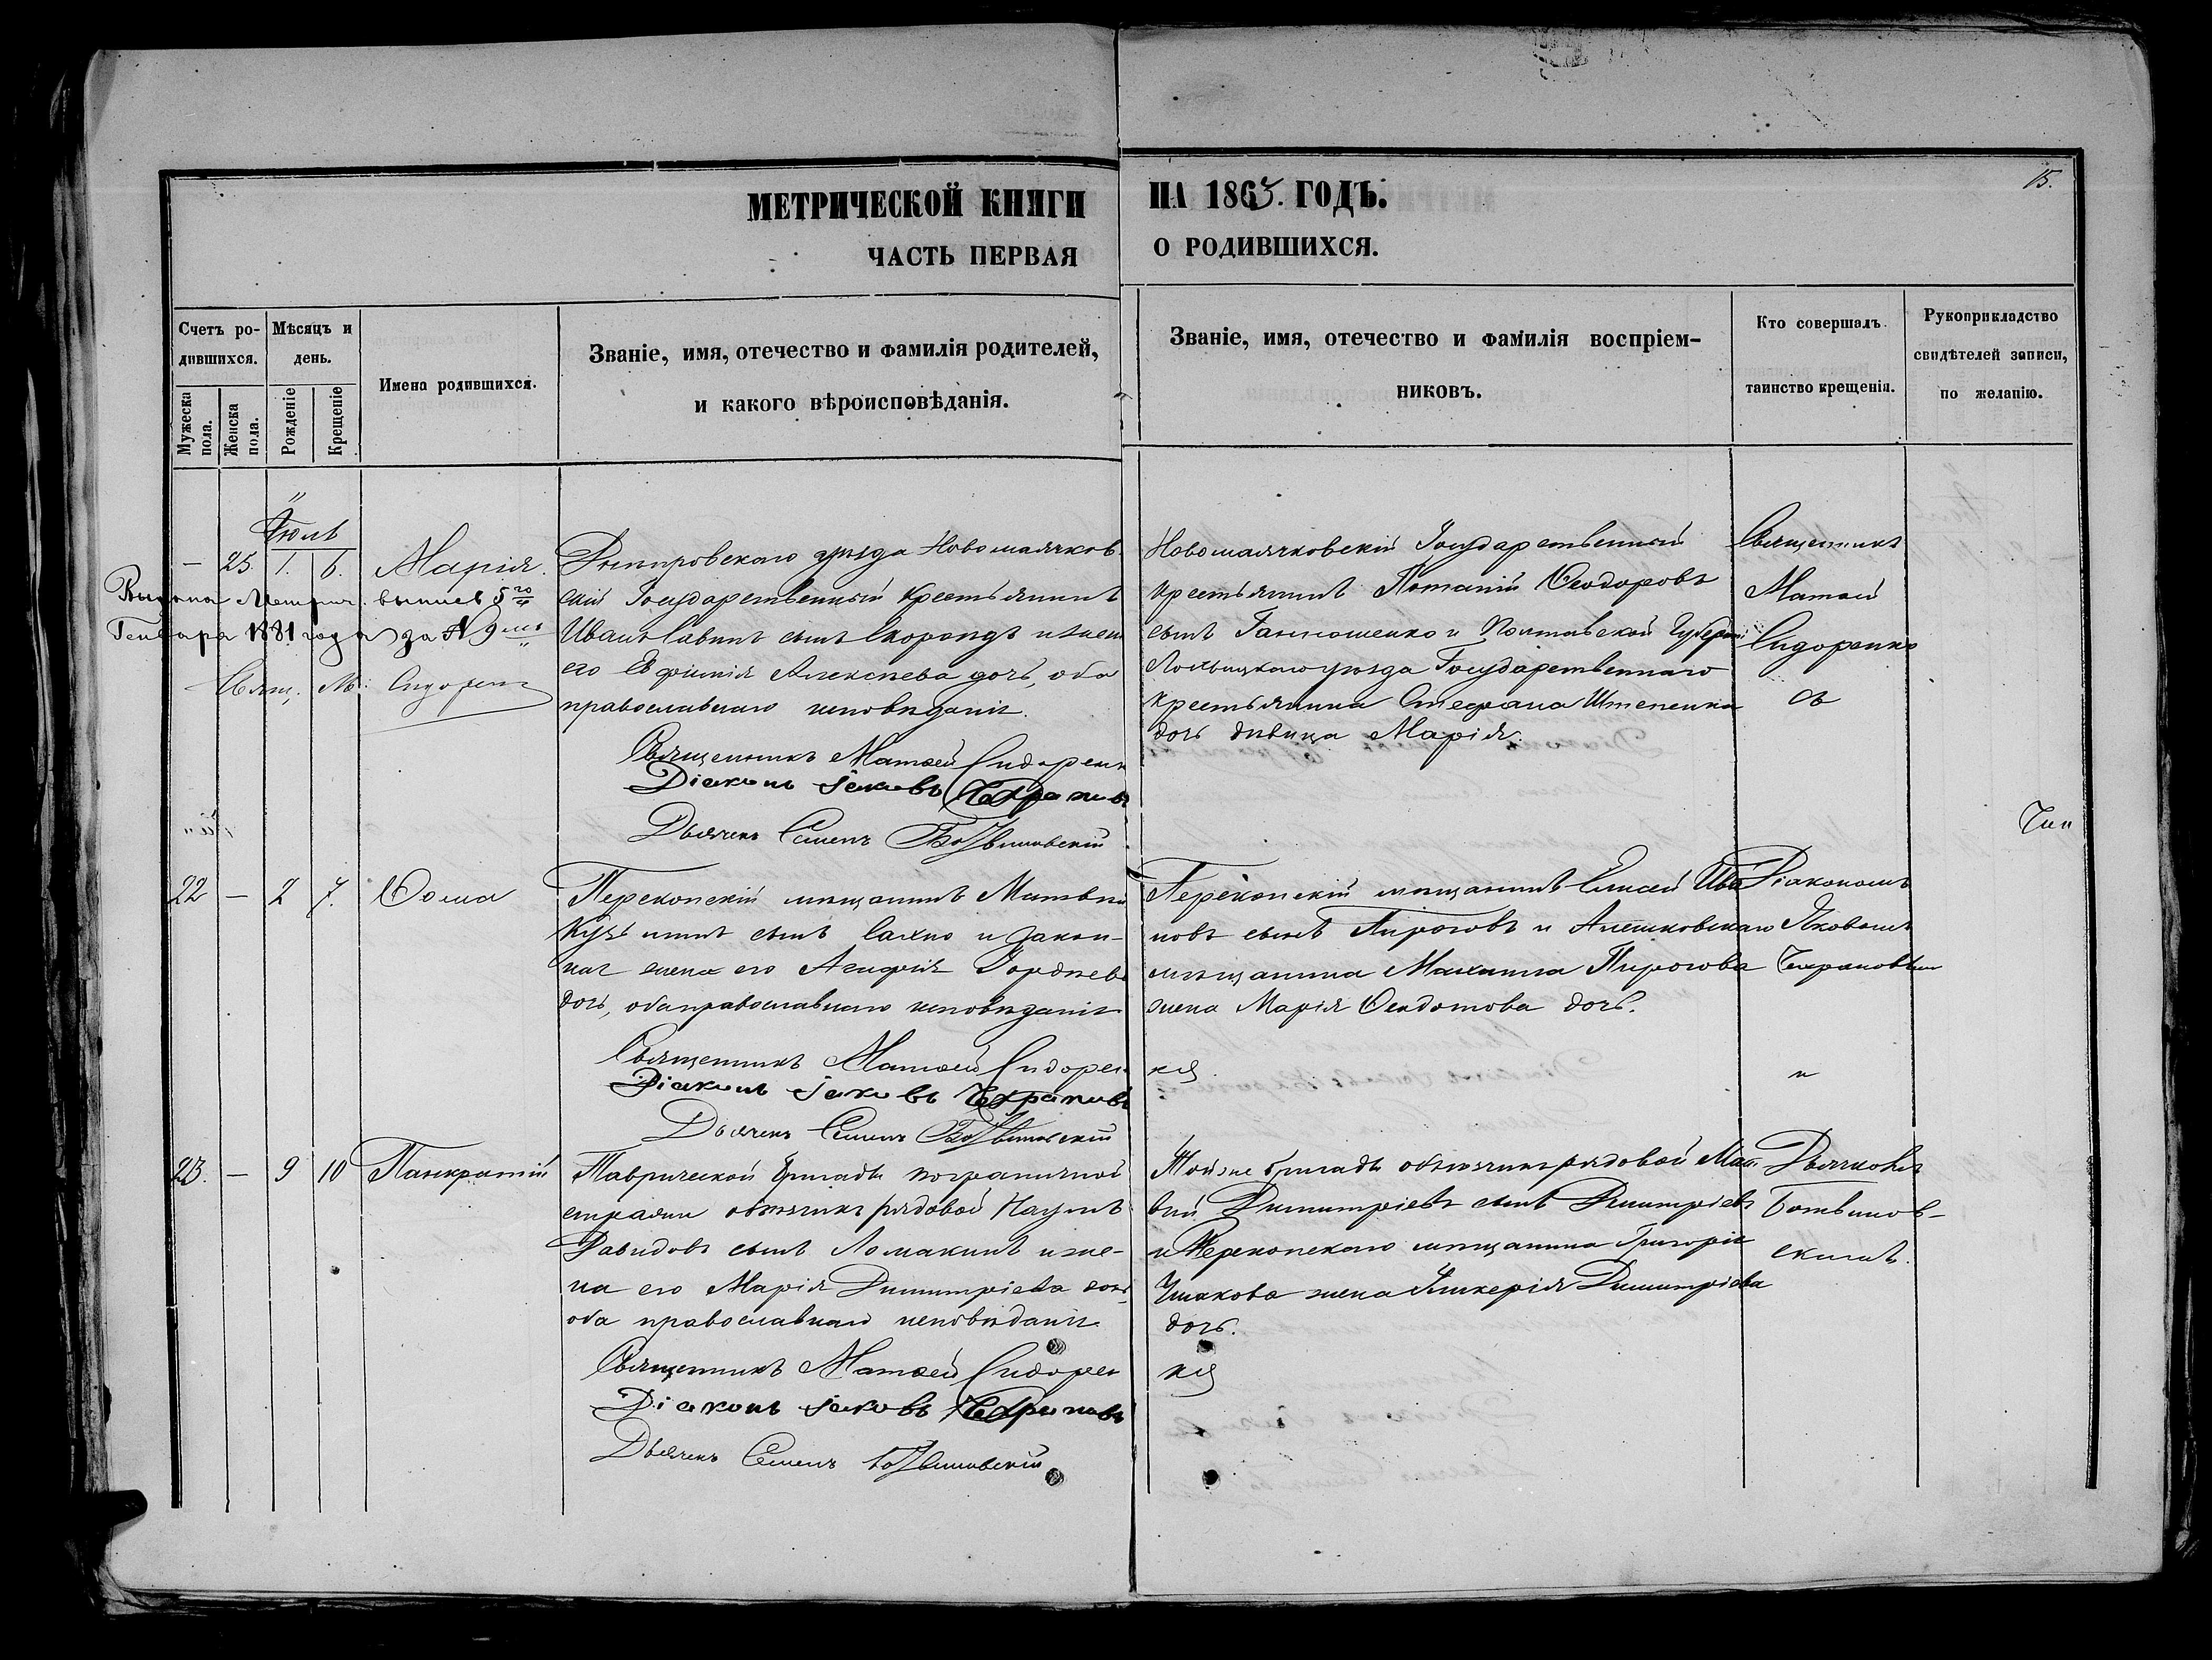 15.
МЕТРИЧЕСКОЙ КНИГИ НА 1863. ГОДЪ.
ЧАСТЬ ПЕРВАЯ О РОДИВШИХСЯ.
Счетъ родившихся.
Мужеска пола.
Женска пола.
Мѣсяцъ и день.
Рожденіе
Крещеніе
Имена родившихся.
Званіе, имя, отечество и фамилія родителей,
и какого вѣроисповѣданія.
Званіе, имя, отечество и фамилія воспріем-
никовъ.
Кто совершалъ
таинство крещенія.
Рукоприкладство
свидѣтелей записи,
по желанію.
Іюль
— 25. 1. 6. Марія.
Выдана Метрич. выпись 5го
Генваря 1881 года за № 9мъ
Свящ. М. Сидоренко
Днѣпровскаго уѣзда Новомаячков-
скій Государственный крестьянинъ
Иванъ Савинъ сынъ и жена
его Евфимія Алексѣева дочь, оба
православнаго исповѣданія.
Священникъ Матѳей Сидоренко
Діаконъ Іаковъ
Дьячекъ Семенъ Ботвиновскій
Новомаячковскій Государственный
крестьянинъ Потапій Ѳеодоровъ
сынъ и Полтавской Губерніи
Лохвицкаго уѣзда Государственнаго
крестьянина Стефана
дочь дѣвица Марія.
Священникъ
Матѳей
Сидоренко
съ
22 — 2 7. Ѳома
Перекопскій мѣщанинъ Матвѣй
Кузьминъ сынъ Сахно и закон-
ная жена его Агафія Гордѣева
дочь, оба православнаго исповѣданія
Священникъ Матѳей Сидоренко
Діаконъ Іаковъ
Дьячекъ Семенъ Ботвиновскій
Перекопскій мѣщанинъ Елисей Ива-
новъ сынъ Пироговъ и Алешковскаго
мѣщанина Максима Пирогова
жена Марія Ѳеодотова дочь.
Діакономъ
Яковомъ
и
23. — 9 10 Панкратій
Таврической бригады пограничной
стражи объѣзчикъ рядовой Наумъ
Давидовъ сынъ Ломакинъ и же-
на его Марія Димитріева дочь
оба православнаго исповѣданія
Священникъ Матѳей Сидоренко
Діаконъ Іаковъ
Дьячекъ Семенъ Ботвиновскій
Той же бригады объѣзчикъ рядовой
Димитріевъ сынъ Димитріевъ
и Перекопскаго мѣщанина Григорія
Ушакова жена Гликерія Димитріева
дочь.
Дьячкомъ
Ботвинов-
скимъ.